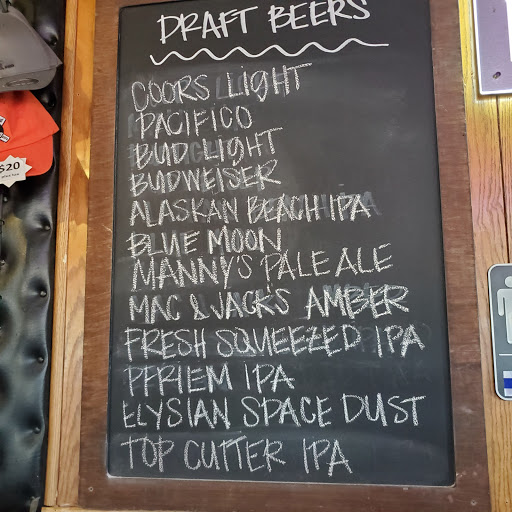 DRAFT BEERS
COORS LIGHT
PACIFICO
BUD LIGHT
BUDWEISER
ALASKAN BEACH IPA
BLUE MOON
MANNY'S PALE ALE
MAC & JACK'S AMBER
FRESH SQUEEZED IPA
PFRIEM IPA
ELYSIAN SPACE DUST
TOP CUTTER IPA
$20